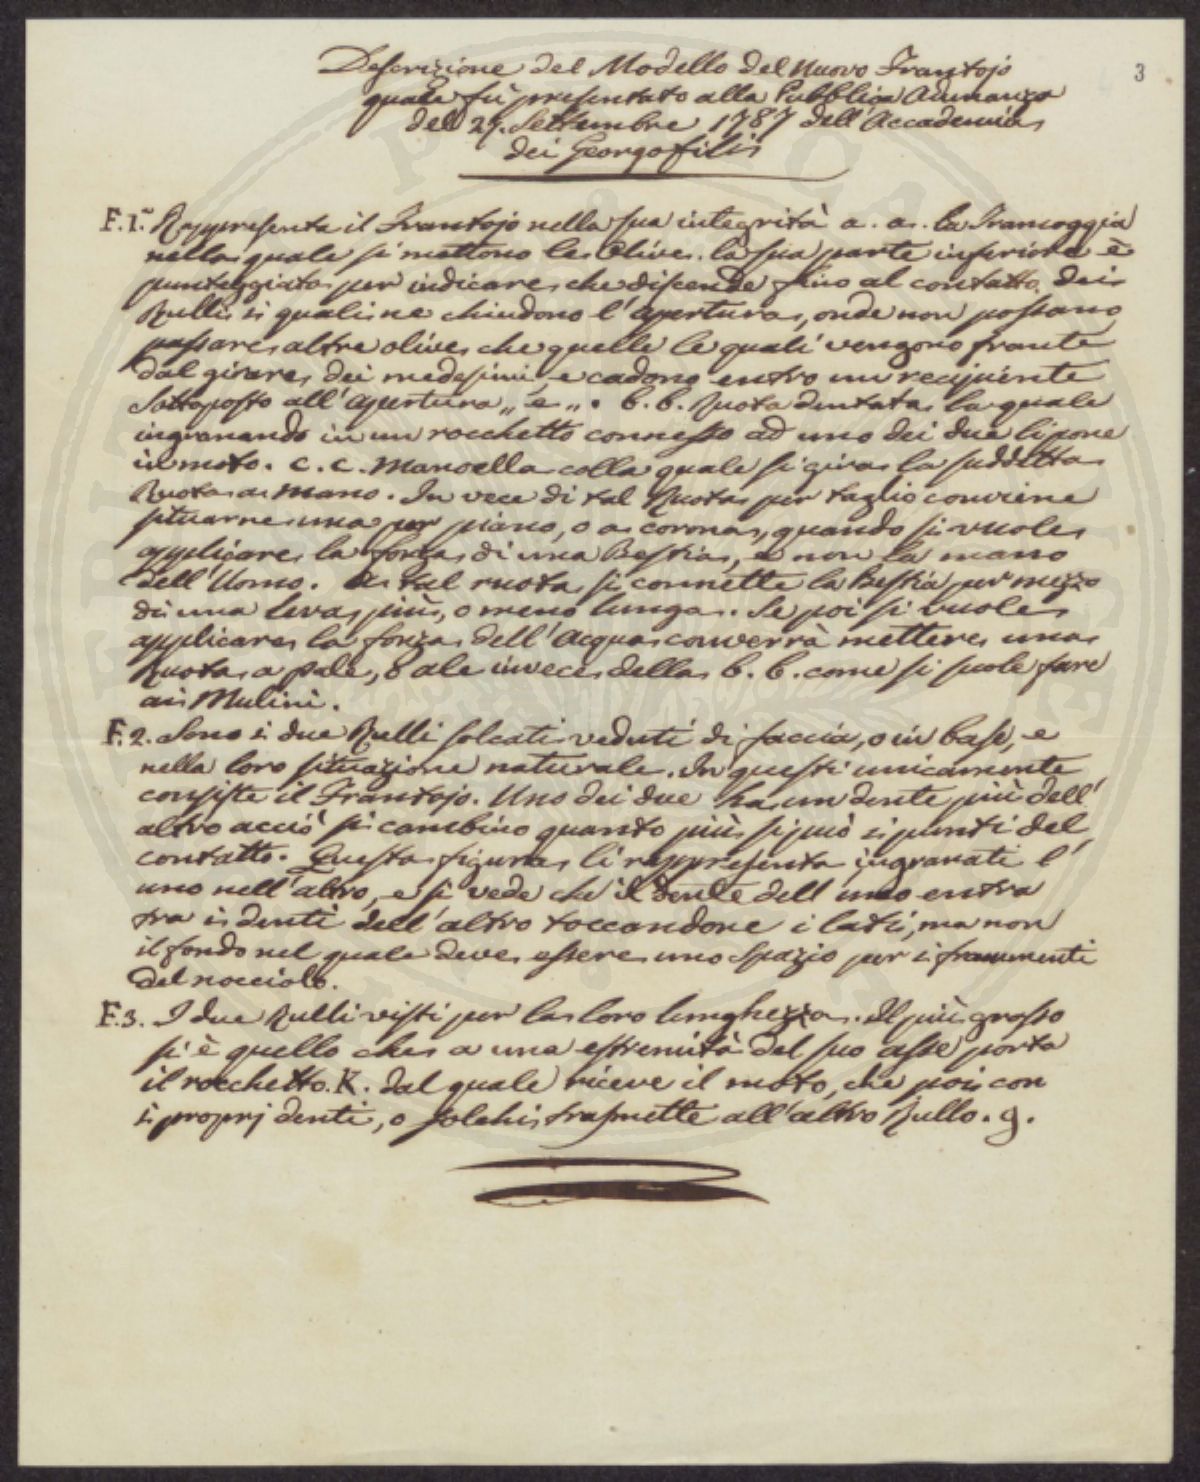 3
Descrizione del Modello del Nuovo Frantojo
quale fù presentato alla Pubblica Adunanza
del 27. Settembre 1787 dell'Accademia
dei Georgofili
F. 1.ª Rappresenta il Frantojo nella sua integrità a. a. la Tramoggia
nella quale si mettono le Olive. la sua parte inferiore è
punteggiata per indicare che discende fino al contatto dei
Rulli i quali ne chiudono l'apertura, onde non possano
passare altre olive che quelle le quali vengono frante
dal girare dei medesimi, e cadono entro un recipiente
sottoposto all'apertura „ e „. b. b. Ruota dentata la quale
ingranando in un rocchetto connesso ad uno dei due li pone
in moto. c. c. Manovella colla quale si gira la suddetta
Ruota a mano. In vece di tal Ruota per taglio conviene
situarne una per piano, o a corona, quando si vuole
applicare la forza di una Bestia, e non la mano
dell'Uomo. A tal ruota si connette la Bestia per mezzo
di una leva più, o meno lunga. Se poi si vuole
applicare la forza dell'Acqua converrà mettere una
Ruota a pale, o ale invece della b. b. come si suole fare
ai Mulini.
F. 2. Sono i due Rulli solcati veduti di faccia, o in base, e
nella loro situazione naturale. In questi unicamente
consiste il Frantojo. Uno dei due ha un dente più dell'
altro acciò si cambino quanto più si può i punti del
contatto. Questa figura li rappresenta ingranati l'
uno nell'altro, e si vede che il dente dell uno entra
tra i denti dell'altro toccandone i lati, ma non
il fondo nel quale deve essere uno spazio per i frammenti
del nocciolo.
F. 3. I due Rulli visti per la loro lunghezza. Il più grosso
si è quello che a una estremità del suo asse porta
il rocchetto. K. dal quale riceve il moto, che poi con
i proprj denti, o solchi trasmette all'altro Rullo. g.